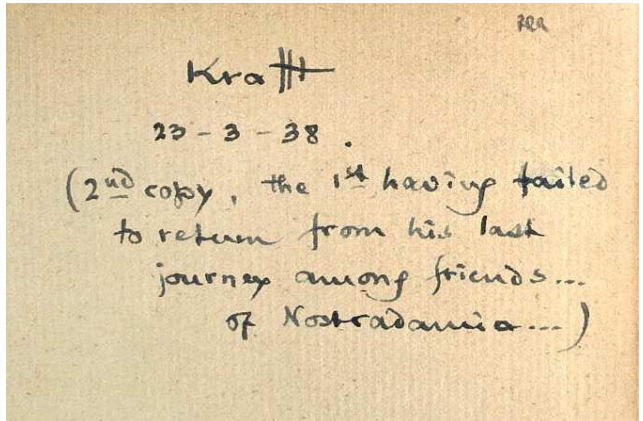 Krafft
23 - 3 - 38.
(2nd copy, the 1st having failed
to return from his last
journey among friends...
of Nostradamia...)